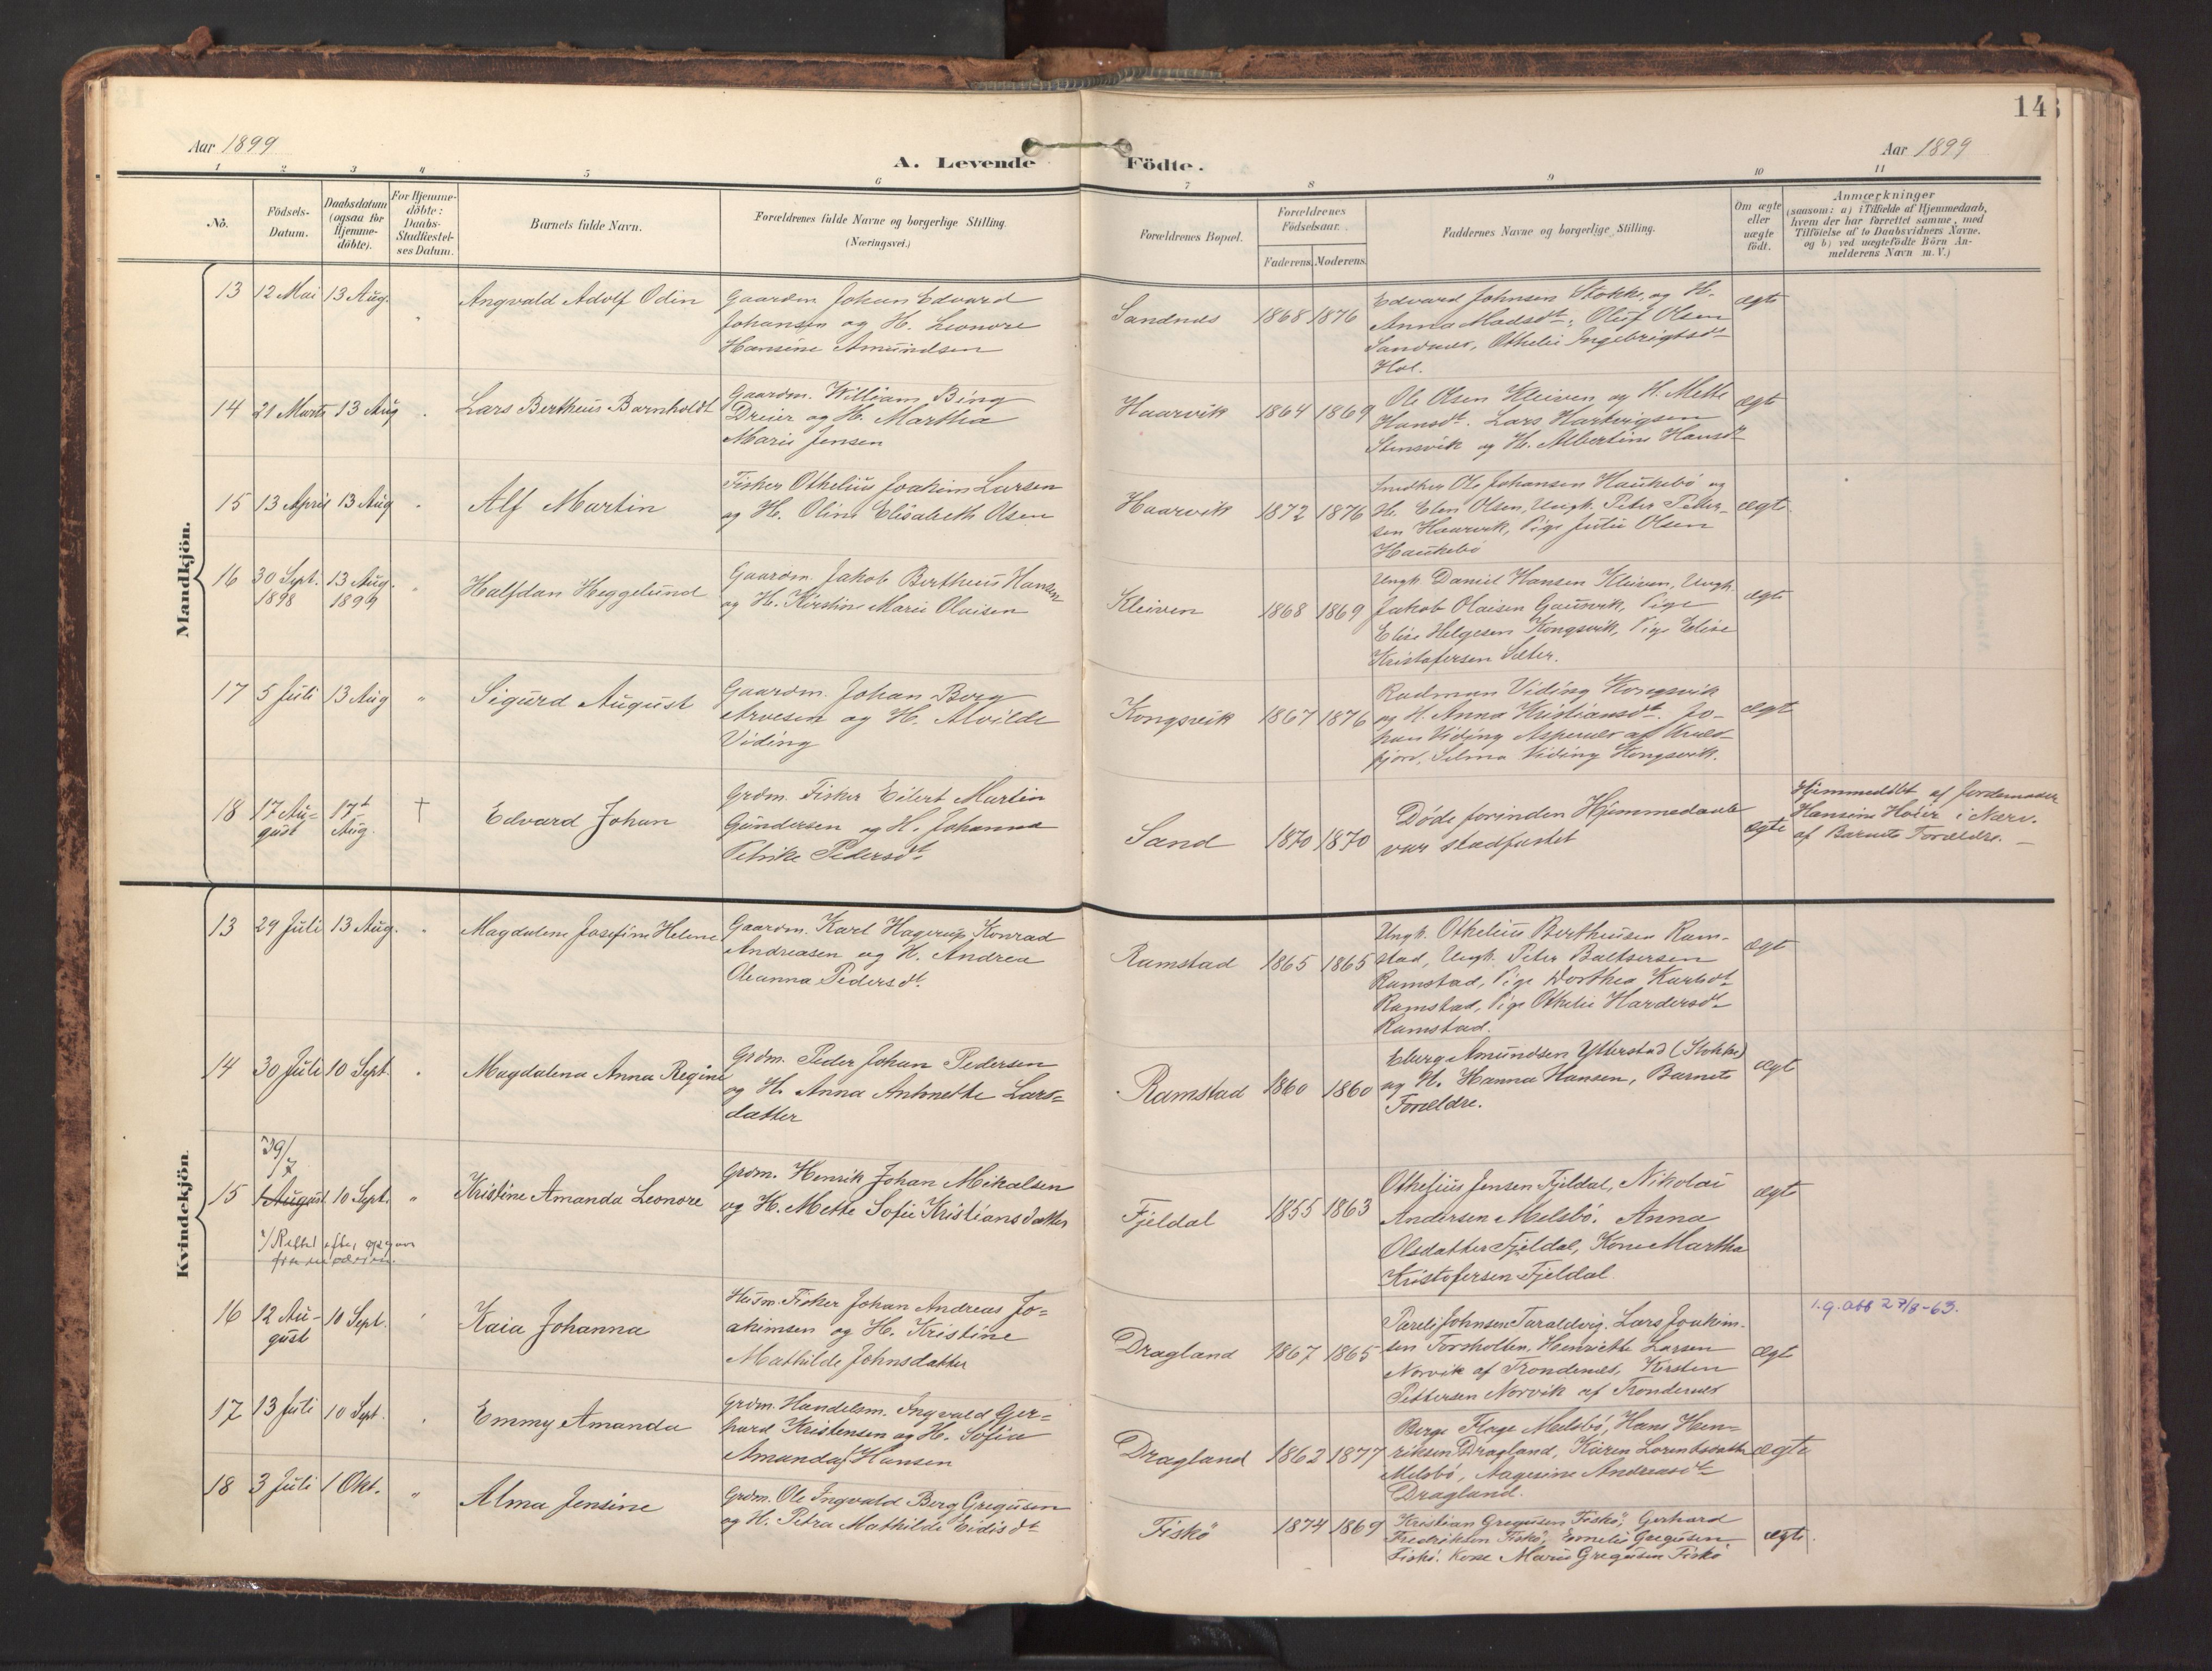 14
Aar 1899
A. Levende Födte.
Aar 1899
1 2 3 4 5 6 7 8 9 10 11
No.
Födsels-Datum.
Daabsdatum (ogsaa for Hjemme-döbte).
For Hjemme-döbte: Daabs-Stadfestel-ses Datum.
Barnets fulde Navn.
Forældrenes fulde Navne og borgerlige Stilling. (Næringsvei.)
Forældrenes Bopæl.
Forældrenes Födselsaar.
Faderens. Moderens.
Faddernes Navne og borgerlige Stilling.
Om ægte eller uægte födt.
Anmærkninger
(saasom: a) i Tilfælde af Hjemmedaab,
hvem der har forrettet samme, med
Tilföielse af to Daabsvidners Navne.
og b) ved uægtefödte Börn An-
melderens Navn m. V.)
Mandkjön.
13 12 Mai 13 Aug. Angvald Adolf Odin
Gaardm. Johan Edvard
Johansen og H. Leonore
Hansine Amundsen
Sandnes 1868 1876
Edvard Johnsen Stokke, og H.
Anna Madsdt., Oluf Olsen
Sandnes, Othelie Ingebrigtsdt
Hol.
ægte
14 21 Marts 13 Aug Lars Bertheus Barnholdt
Gaardm. William Bing
Dreier og H. Martha
Marie Jensen
Haarvik 1864 1869
Ole Olsen Kleiven og H. Mette
Hansdt. Lars Hartvigsen
Stensvik og H. Albertine Hansdt
ægte
15 13 April 13 Aug Alf Martin
Fisker Othelius Joakim Larsen
og H. Oline Elisabeth Olsen
Haarvik 1872 1876
Snedker Ole Johansen Haukebö og
H. Elen Olsen, Ungk. Peter Petter-
sen Haarvik, Pige Julie Olsen
Haukebö
ægte
16 30 Sept. 1898 13 Aug. 1899 Halfdan Heggelund
Gaardm. Jakob Bertheus Hansen
og H. Kirstine Marie Olaisen
Kleiven 1868 1869
Ungk. Daniel Hansen Kleiven, Ungk.
Jakob Olaisen Gausvik, Pige
Elise Helgesen Kongsvik, Pige Elise
Kristofersen Sæter.
ægte
17 5 Juli 13 Aug " Sigurd August
Gaardm. Johan Borg
Arvesen og H. Alvilde
Viding
Kongsvik 1867 1876
Radman Viding Kongsvik
og H. Anna Kristiansdt. Jo-
han Viding Aspenes af Kvæd-
fjord, Selma Viding Kongsvik.
ægte
18 17 Au=gust 17t Aug. † Edvard Johan
Grdm. Fisker Eilert Martin
Gundersen og H. Johanna
Petrike Pedersdt
Sand 1870 1870
Döde forinden Hjemmedaabe
var stadfæstet
ægte
Hjemmedöbt af Jordemoder
Hansine Holer i Nærv.
af Barnets Forældre.
Kvindekjön.
13 29 Juli 13 Aug. Magdalene Josefine Helene
Gaardm. Karl Hagerup Konrad
Andreasen og H. Andrea
Oleanna Pedersdt.
Ramstad 1865 1865
Ungk. Othelius Bertheusen Ram-
stad, Ungk. Peter Baltsersen
Ramstad, Pige Dorthea Karlsdt
Ramstad, Pige Othelie Hardersdt
Ramstad.
ægte
14 30 Juli 10 Sept. Magdalena Anna Regine
Grdm. Peder Johan Pedersen
og H. Anna Antonette Lars=
datter
Ramstad 1860 1860
Amundsen Ytterstad (Stokke)
og H. Hanna Hansen, Barnets
Forældre.
ægte
29/7
15 August 10 Sept. " Kristine Amanda Leonore
Grdm. Henrik Johan Mikalsen
og H. Mette Sofie Kristiansdatter
Fjeldal 1855 1863
Othelius Jensen Fjeldal, Nikolai
Andersen Melsbö. Anna
Olsdatter Fjeldal, Kone Martha
Kristofersen Fjeldal
ægte
16 12 Au-gust 10 Sept. Kaia Johanna
Husm. Fisker Johan Andreas Jo=
akimsen og H. Kristine
Mathilde Johnsdatter
Dragland 1867 1865
Pareli Johnsen Taraldvig. Lars Joakim-
sen Forsholten, Henriette Larsen
Norvik af Trondenes, Kirsten
Pettersen Norvik af Trondenes
ægte
27/8-63.
17 13 Juli 10 Sept. Emmy Amanda
Grdm. Handelsm. Ingvald Ger=
hard Kristensen og H. Sofie
Amanda Hansen
Dragland 1862 1877
Berge Melsbö, Hans Hen-
riksen Dragland, Karen Lorentsdatter
Melsbö, Aagesine Andreasdt
Dragland.
ægte
18 3 Juli 1 Okt. " Alma Jensine
Grdm. Ole Ingvald Berg Gregusen
og H. Petra Mathilde Eidisdt
Fiskö 1874 1869
Kristian Gregusen Fiskö, Gerhard
Fredriksen Fiskö, Emelie Gregusen
Fiskö. Kone Marie Gregusen Fiskö
ægte.